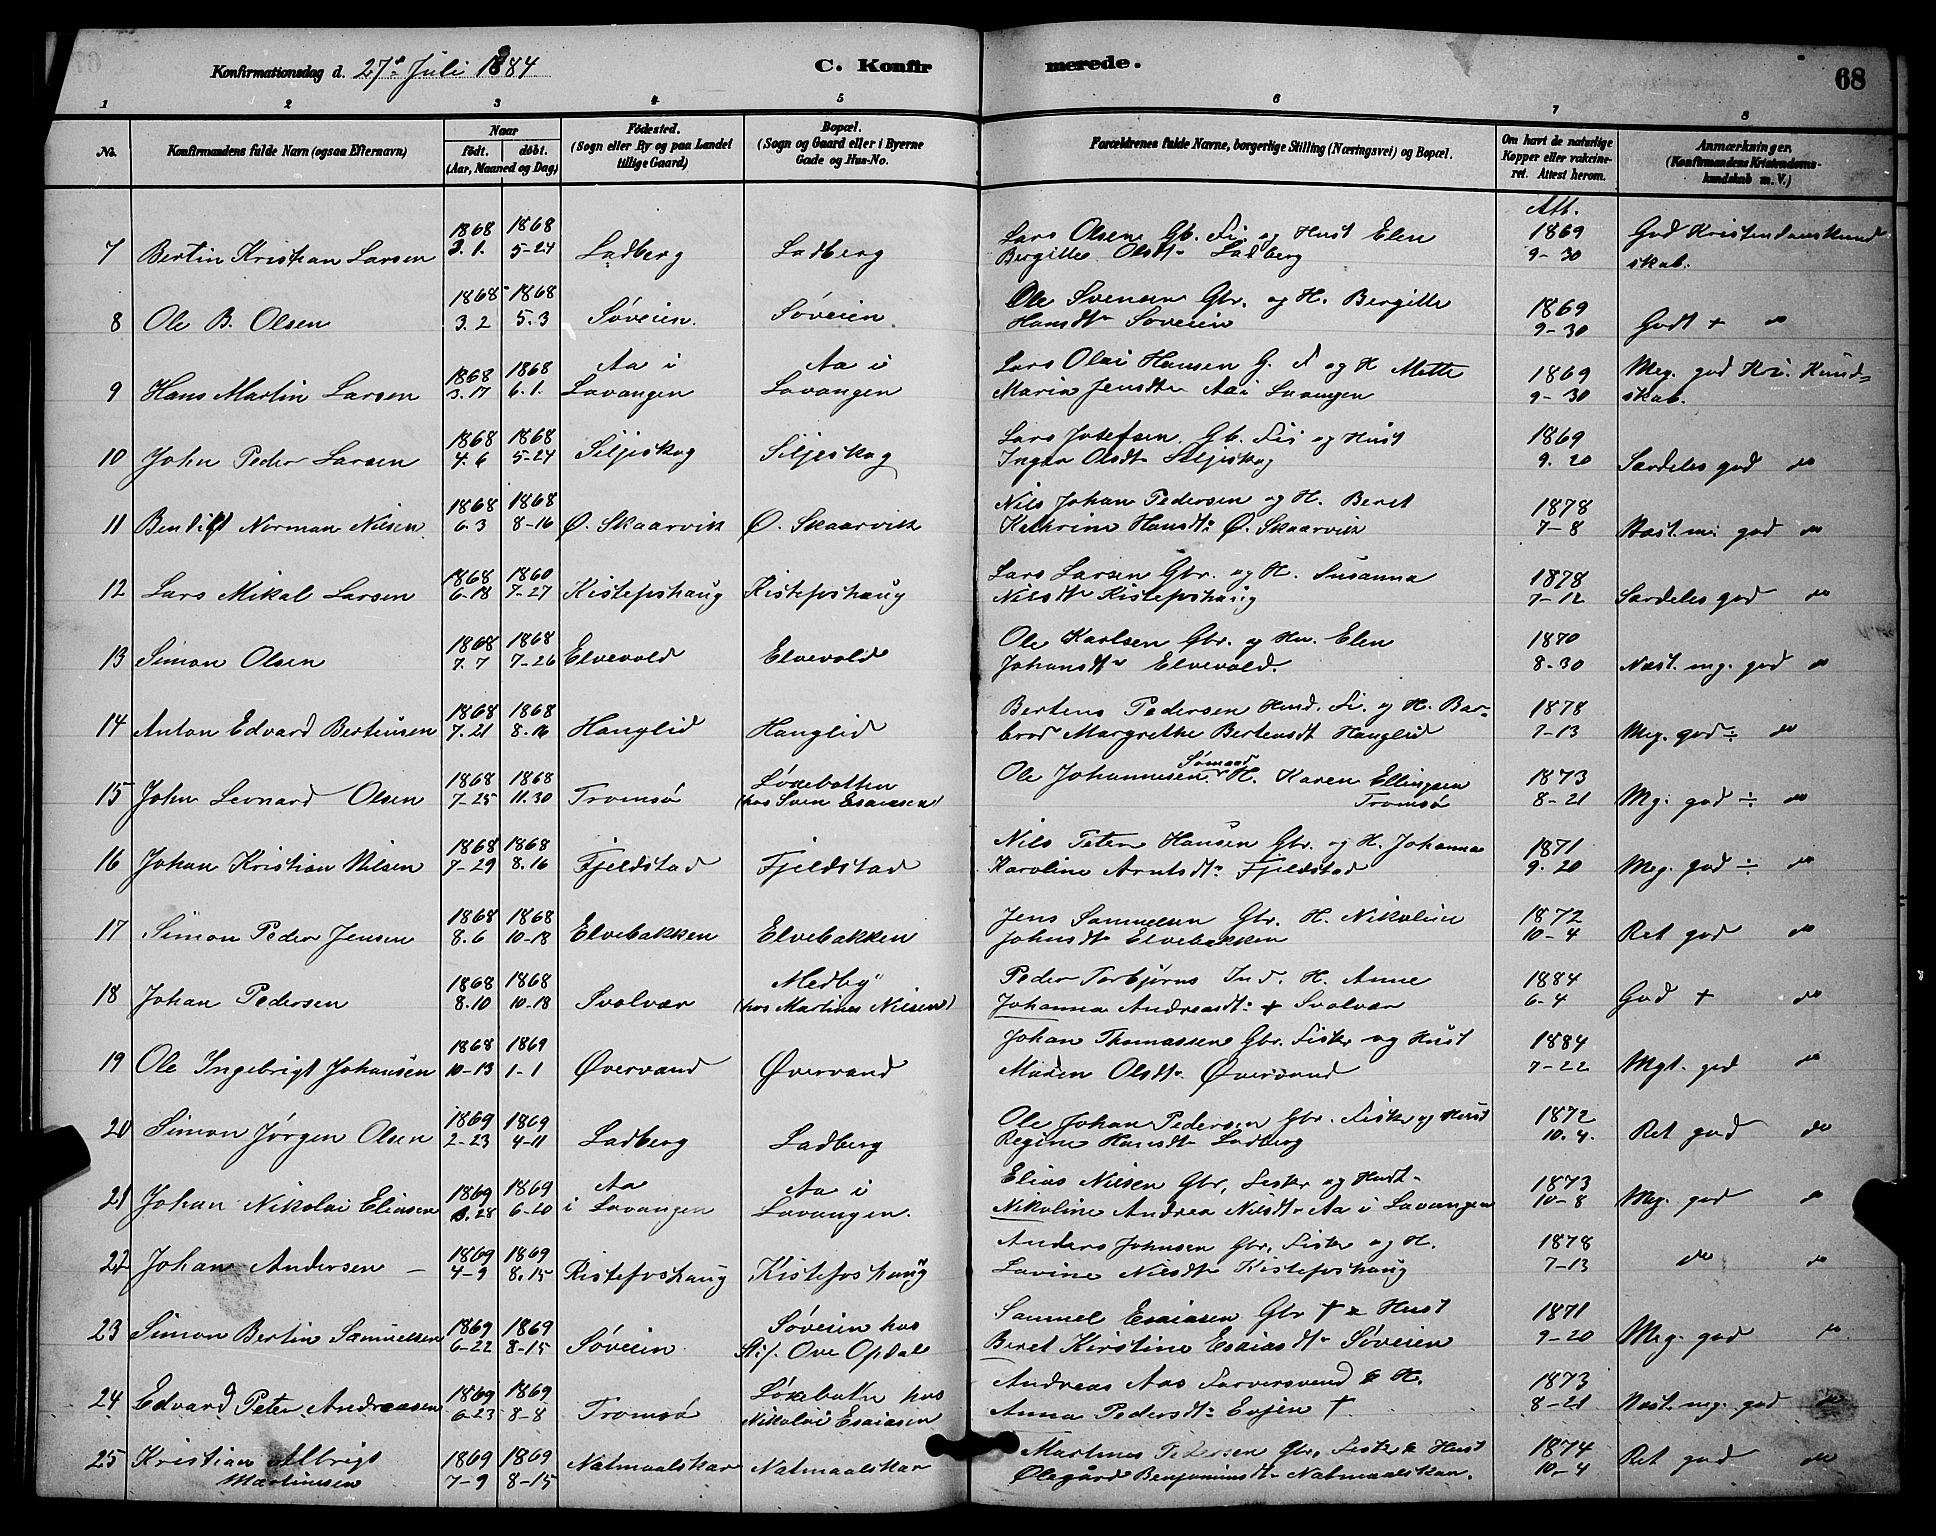 Konfirmationsdag d. 27de Juli 1884
C. Konfirmerede.
68
1 2 3 4 5 6 7 8
No. Konfirmandens fulde Navn (ogsaa Efternavn) Naar født. døbt. (Aar, Maaned og Dag) Fødested. (Sogn eller By og paa Landet tillige Gaard) Bopæl. (Sogn og Gaard eller i Byerne Gade og Hus-No. Forældrenes fulde Navne, borgerlige Stilling (Næringsvei) og Bopæl. Om havt de naturlige Kopper eller vakcineret. Attest herom. Anmærkninger. (Konfirmandens Kristendomskundskab m. V.)
Att.
7 Bertin Kristian Larsen 1868 3.1. 1868 5-24 Ladberg Ladberg Lars Olsen Gb. Fi og Hust Elen Bergitte Olsdtr Ladberg 1869 9-30 God Kristendomskundskab.
8 Ole B. Olsen 1868 3.2 1868 5.3 Søveien. Søveien Ole Svensen Gbr. og H. Bergitte Hansdtr Søveien 1869 9-30 Godt + do
9 Hans Martin Larsen 1868 3.17 1868 6.1. Aa i Lavangen Aa i Lavangen Lars Olai Hansen G. F og H Mette Maria Jensdtr Aa i Lavangen 1869 9-30 Meg. god Kri. Kundskab.
10 John Peder Larsen 1868 4.6 1868 5-24 Siljeskog Siljeskog Lars Josefsen. Gb. Fis og Hust Inger Olsdtr Siljeskog 1869 9.20 Særdeles god do
11 Bendikt Norman Nilsen. 1868 6-3 1868 8-16 Ø. Skaarvik Ø. Skaarvik Nils Johan Pedersen og H. Beret Kathrine Hansdtr Ø. Skaarvik 1878 7-8 Næst. m. god do
12 Lars Mikal Larsen 1868 6-18 1860 7-27 Kistefoshaug Kistefoshaug Lars Larsen Gbr. og H. Susanna Nilsdtr Kistefoshaug 1878 7-12 Særdeles god do
13 Simon Olsen 1868 7.7 1868 7-26 Elvevold Elvevold Ole Karlsen Gbr. og Hu. Elen Johansdtr Elvevold. 1870 8-30 Næst. mg. god do
14 Anton Edvard Bertinsen 1868 7.21 1868 8.16 Hanglid Hanglid Bertens Pedersen Husd. Fi. og H. Barbroe Margrethe Bertensdt Hanglid 1878 7-13 Meg. god ÷ do
15 John Leonard Olsen 1868 7-25 1868 11.30 Tromsø Løxebotten (hos Sven Esaiasen) Ole Johannesen Sømand H. Karen Ellingsen Tromsø 1873 8-21 Mg. god ÷ do
16 Johan Kristian Nilsen 1868 7-29 1868 8.16 Fjeldstad Fjeldstad Nils Peter Hansen Gbr. og H. Johanna Karoline Arntsdtr Fjeldstad 1871 9.20 Meg. god ÷ do
17 Simon Peder Jensen 1868 8.6 1868 10-18 Elvebakken Elvebakken Jens Samuelsen Gbr. H. Nikoline Johnsdtr Elvebakken 1872 10-4 Ret god do
18 Johan Pedersen 1868 8.10 1868 10-18 Svolvær Medby (hos Martines Nilsen) Peder Torbjørns Ind. H. Anne Johanna Andreasdtr + Svolvær 1884 6-4 God + do
19 Ole Ingebrigt Johansen 1868 10-13 1869 1-1 Øvervand Øvervand Johan Thomassen Gbr. Fisker og Hust Maren Olsdtr Øvervand 1884 7-22 Mgt. god do
20 Simon Jørgen Olsen 1869 2-23 1869 4-11 Ladberg Ladberg Ole Johan Pedersen Gbr. Fisker og Hust Regine Hansdtr Ladberg 1872 10.4. Ret god do
21 Johan Nikolai Eliasen 1869 3.28 1869 6-20 Aa i Lavangen Aa i Lavangen. Elias Nilsen Gbr, Fisker og Hust. Nikoline Andrea Nilsdtr Aa i Lavangen 1873 10-8 Meg. god do
22 Johan Andersen – 1869 4-9 1869 8.15 Kistefoshaug Kistefoshaug Anders Johnsen Gbr, Fisker og H. Lavine Nilsdtr Kistefoshaug 1878 7-13 do do
23 Simon Bertin Samuelsen 1869 6-22 1869 8-15 Søveien Søveien hos Stif. Ove Opdal Samuel Esaiasen Gbr + & Hust Beret Kirstine Esaiasdtr Søveien 1871 9-20 Meg. god do
24 Edvard Peter Andreasen 1869 6-23 1869 8-8 Tromsø Løxebotn hos Nikolai Esaiasen Andreas Aas Farversvend & H. Anna Pedersdtr Evjen + 1873 8-21 Næst. mg. god do
25 Kristian Albrigt Martinusen 1869 7-9 1869 8-15 Natmaalskar Natmaalskar Martinus Petersen Gbr, Fisker & Hust Olegård Benjaminsdtr Natmaalskar. 1874 10-4 Ret god do